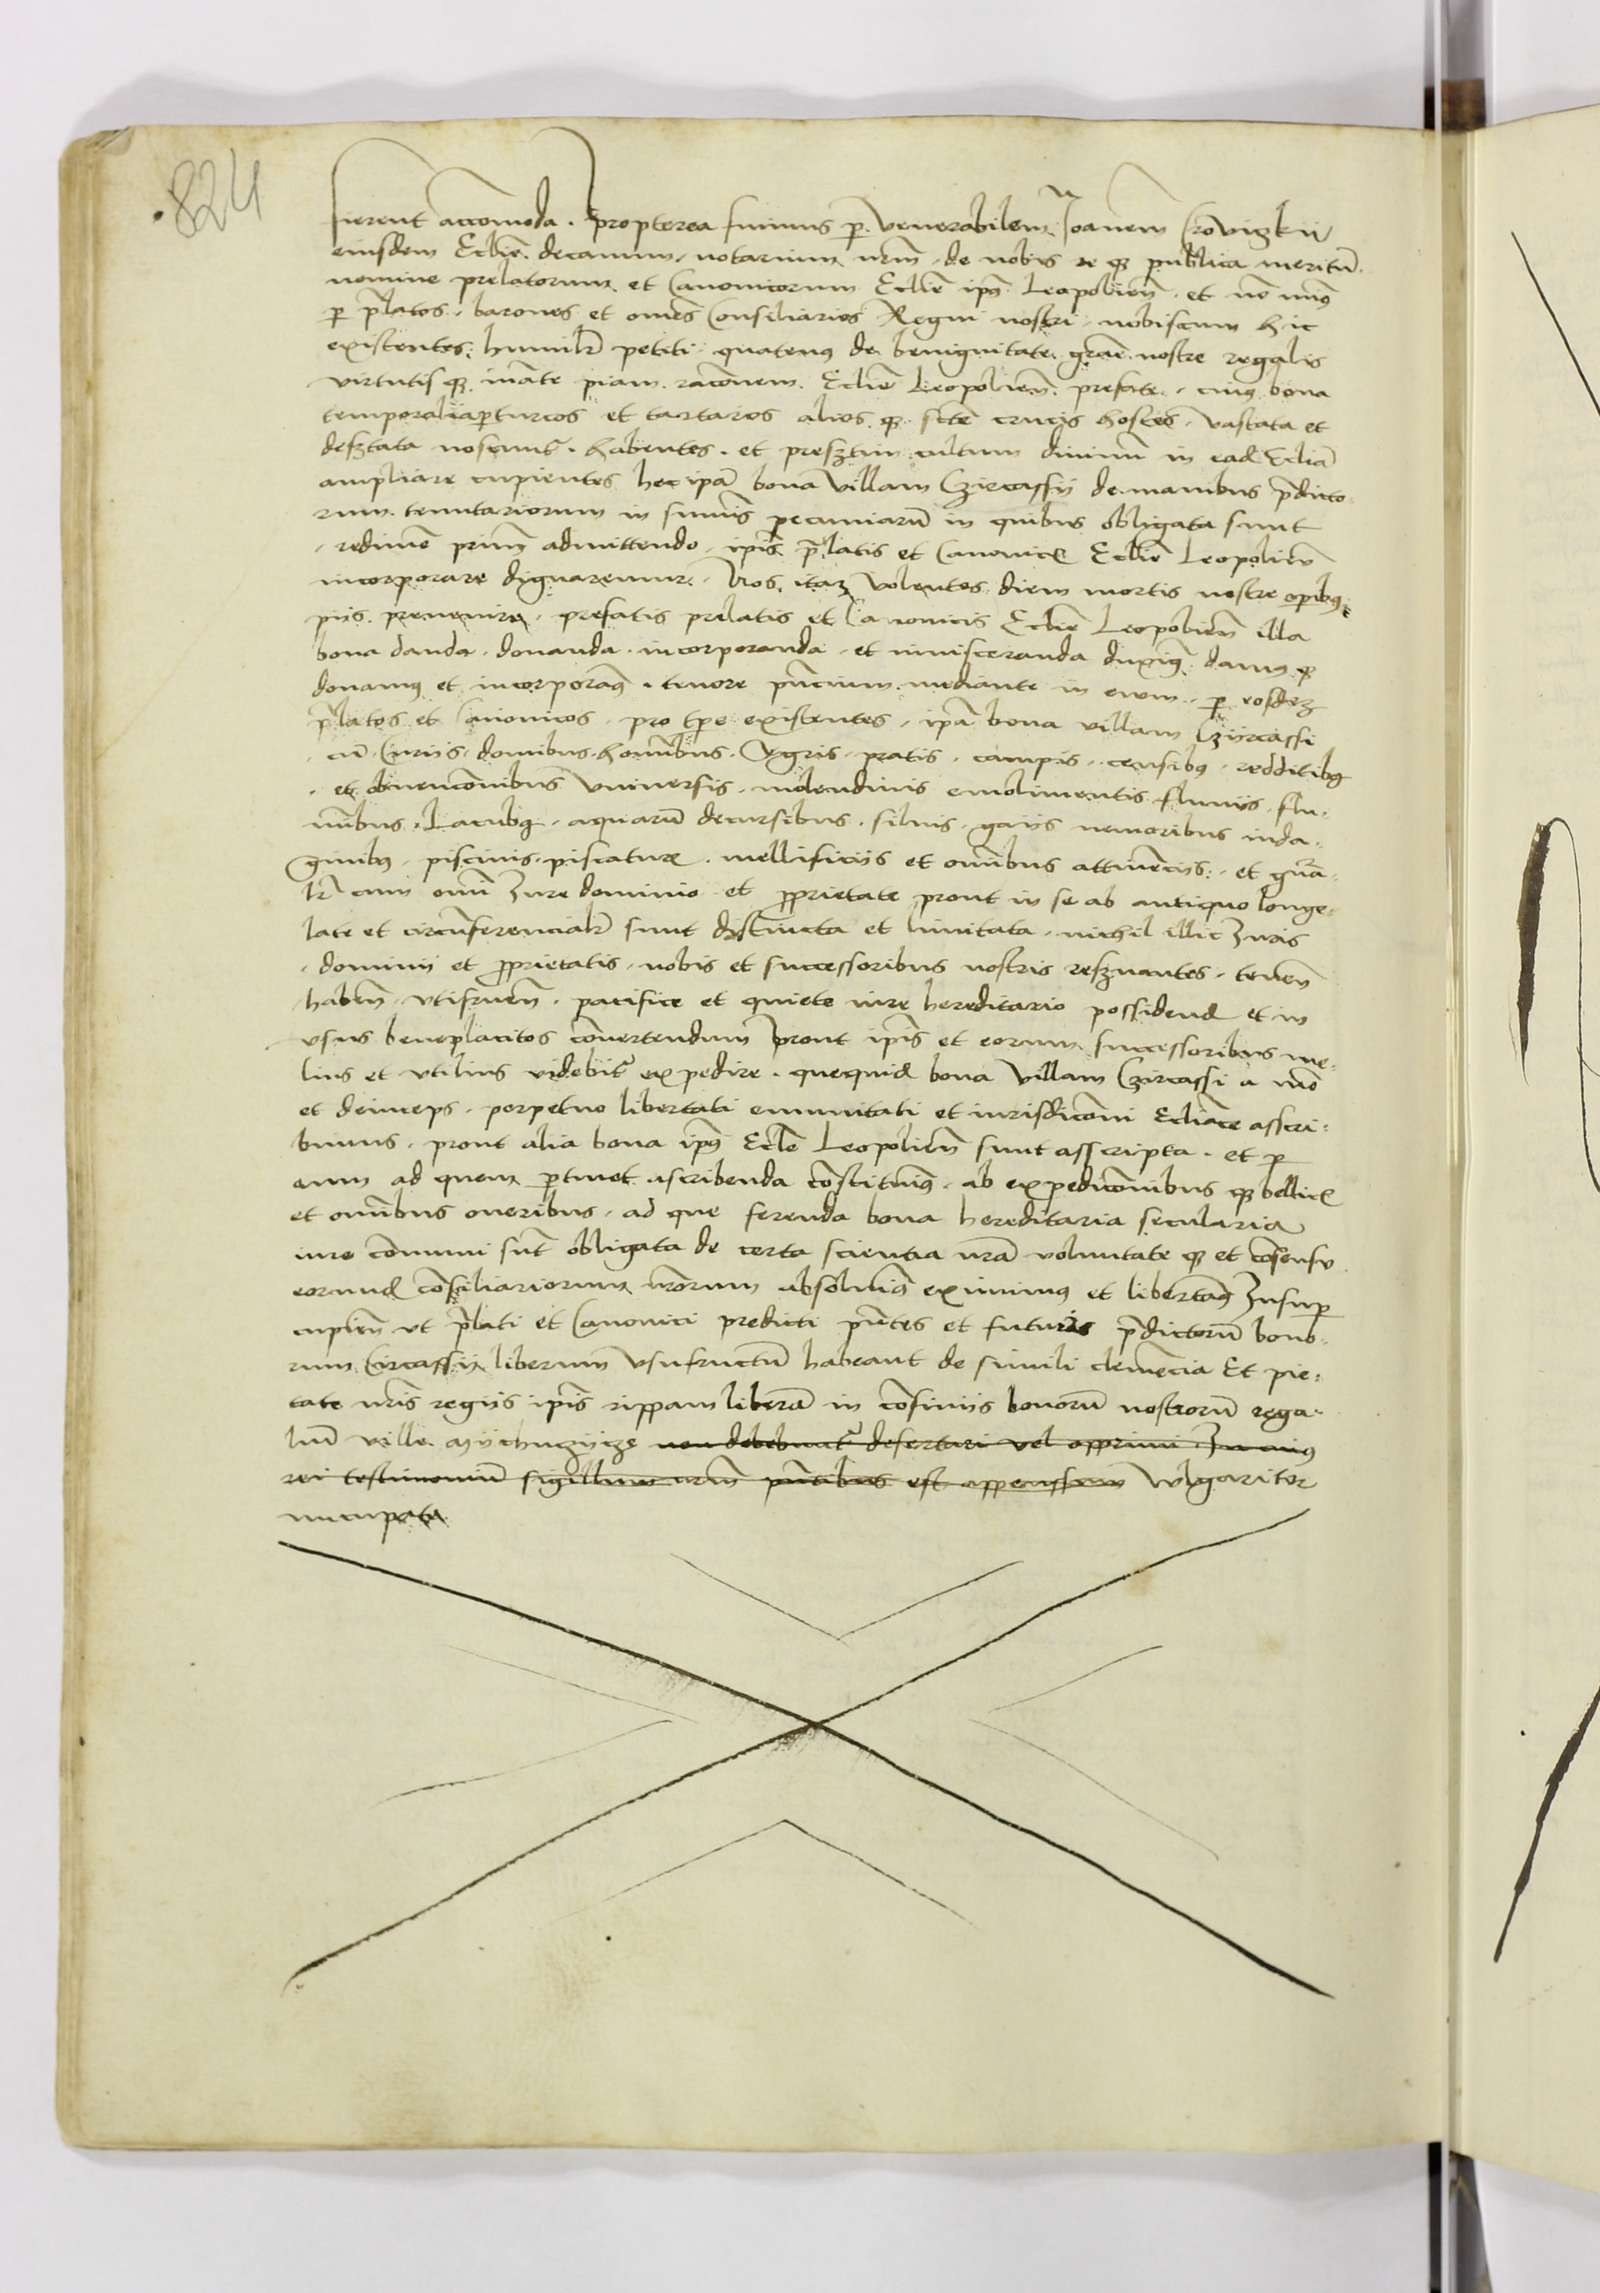 824
fuerent accomoda. propterea fuimus p venerabilem Joanem Crovizkii
eiusdem Eclie decanum, notarium nrm, de nobis re q3 publica meritu
nomine prelatorum et Canonicorum Eclie ipi9 Leopolien et no min9
p platos, barones et omes Consiliarios Regni nostri, nobiscum hic
existentes, humilr petiti quaten9 de benignitate grae nostre regalis
virtutis q3 inate piam racionem Eclie Leopolien prefate, cui9 bona
temporalia p turcos et tartaros alios q3 scte crucis hostes, vastata et
desertata noscuntr, habentes. et presertim cultum diuinu in ead Eclia
ampliare cupientes hec ipa bona villam Czircassy de manibus pdicto-
rum tenutariorum in sumis pecuniaru in quibus obligata sunt
redimere primu admittendo, ipis platis et Canonicis Eclie Leopolien
incorporare dignaremur. Nos itaq3 volentes diem mortis nostre opib9
piis prevenire, prefatis prelatis et Canonicis Eclie Leopolien illa
bona danda, donanda, incorporanda, et inuisceranda duxim9 dam9 q3
donam9 et incorporam9, tenore pncium mediante in evum, p eosdez
platos et Canonicos, pro tpe existentes, ipa bona villam Czircassi
cu Curiis, domibus, hominibus, Agris, pratis, campis, censib9, redditib9
et obuencionibus vniuersis, molendinis emolimentis fluuiis, flu-
minibus, Lacub9, aquaru decursibus, siluis, gaiis nemoribus inda-
ginib9, piscinis, piscaturis, mellificiis et omibus attinenciis, et gnra-
lr cum omi Jure dominio et prprietate prout in se ab antiquo longe
late et circuferencialr sunt distincta et limitata, nichil illic Juris
dominii et prprietatis, nobis et successoribus nostris reseruantes, tenen
haben vtifruen, pacifice et quiete iure hereditario possidend et in
vsus beneplacitos couertendum prout ipis et eorum successoribus me-
lius et vtilius videbitr expedire. quequid bona villam Czircassi a mo
et deinceps, perpetuo libertati emunitati et iurisdicioni Ecliace asscri-
bimus, prout alia bona ipi9 Eclie Leopolien sunt asscripta. et p
eum ad quem ptinet ascribenda constituim9, ab expedicionibus q3 bellicis
et omibus oneribus, ad que ferenda bona hereditaria secularia
iure comuni sut obligata de certa scientia nra voluntate q3 et cosensu
eorund consiliariorum nrorum absoluim9 eximimus et libertam9 Jnsuper
cupien vt plati et Canonici predicti pntes et futuris pdictoru bono-
rum Circassii liberum vsufructu habeant de simili clemencia Et pie-
tate nris regiis ipis rippam libera in cofiniis bonoru nostrorum rega-
liu ville Mychnyze non debebuntr desertari vel opprimi Jn cui9
rei testimoniu sigillum nrm pntibus est appenssum wlgariter
nucupata